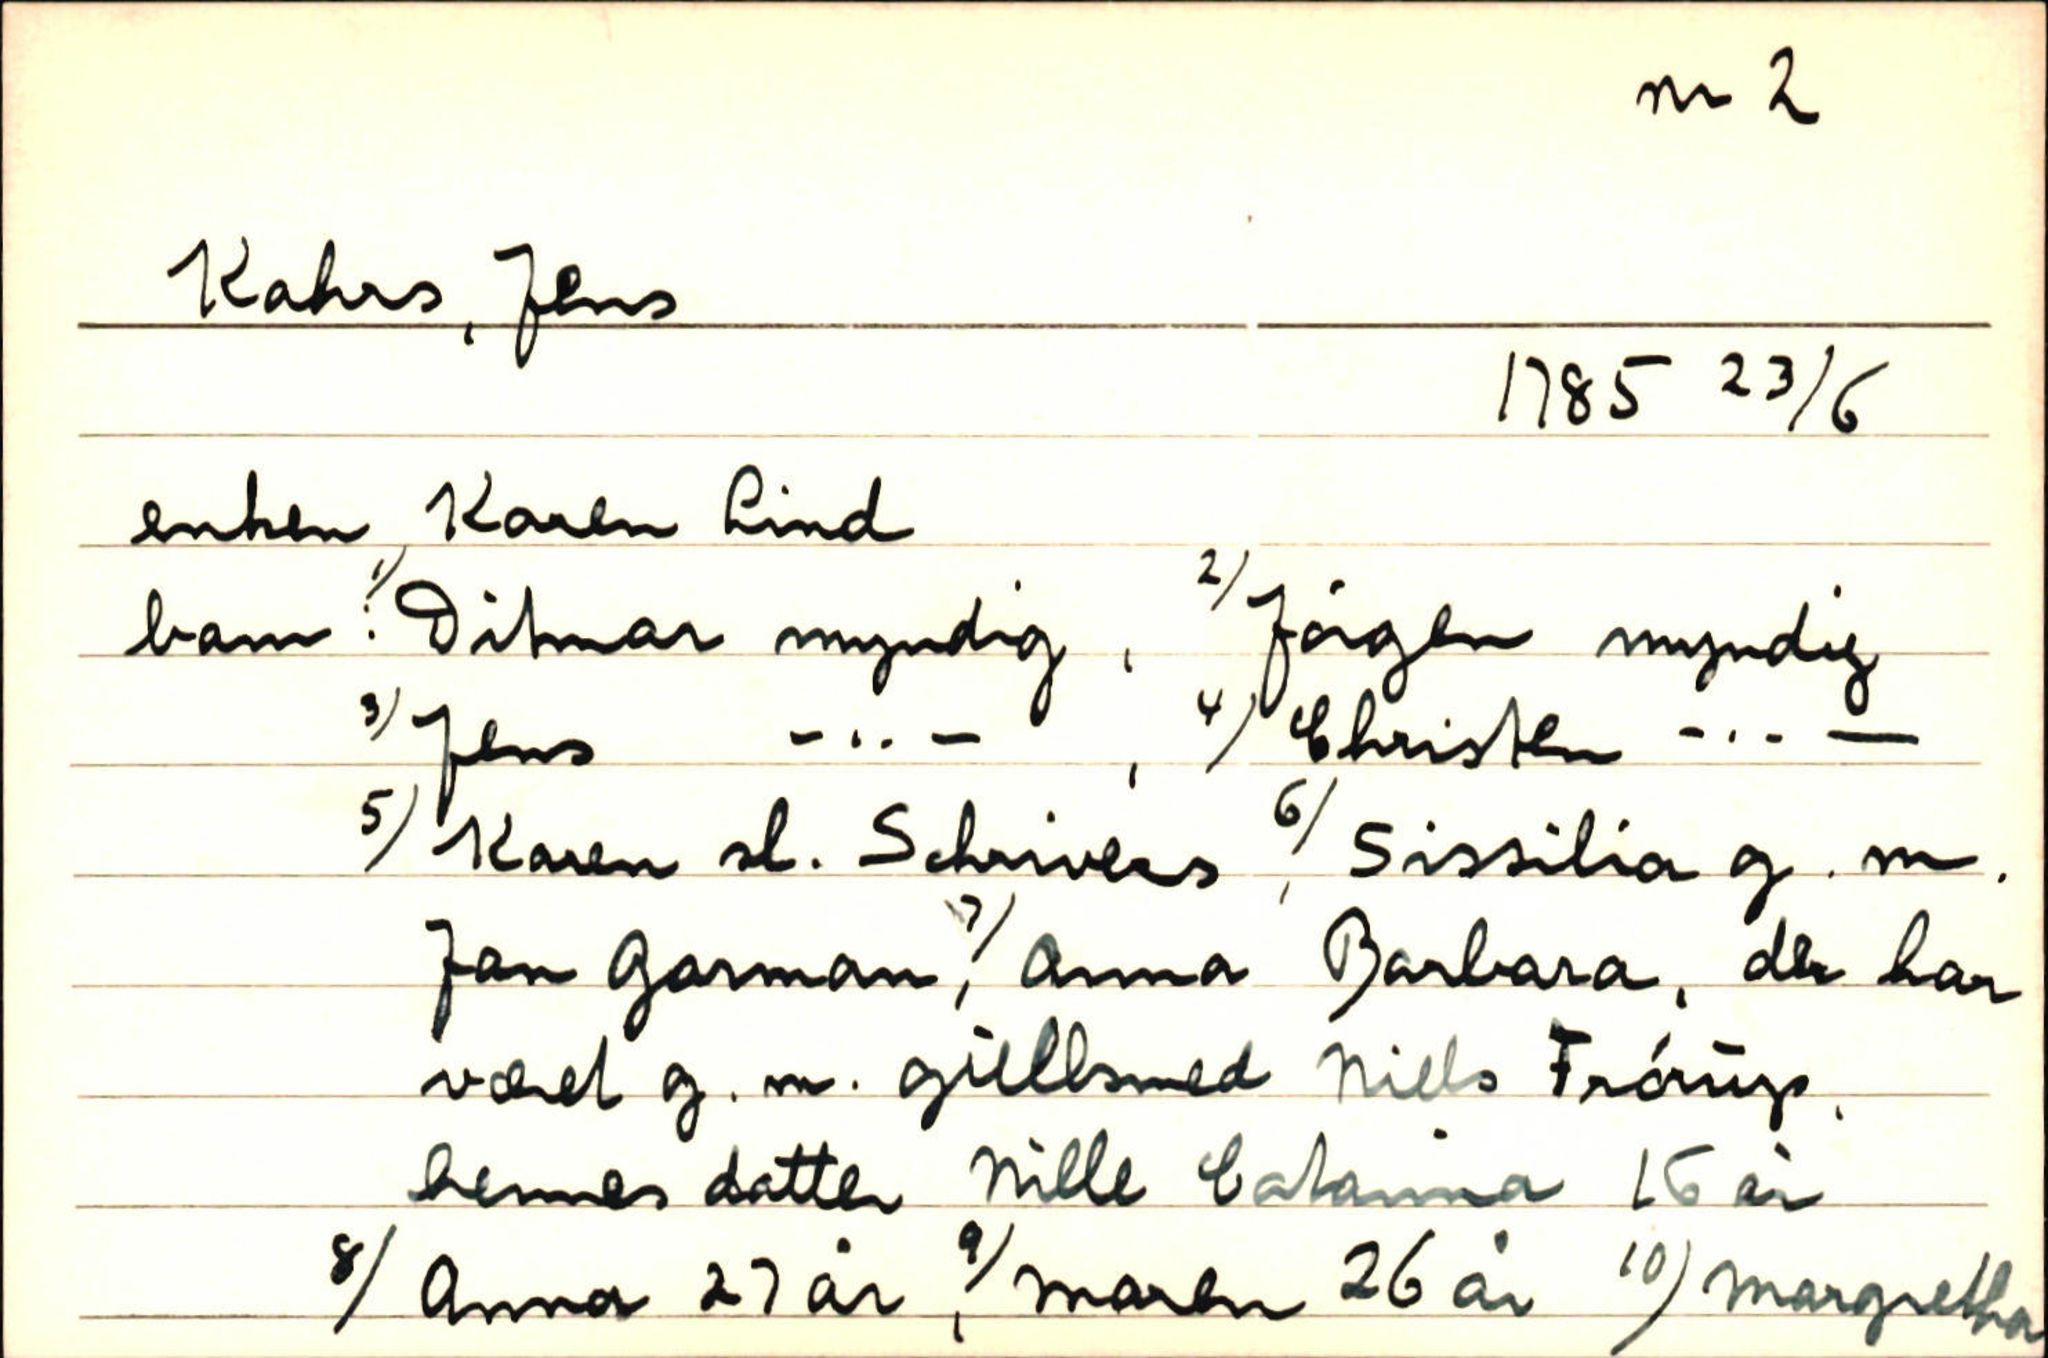 nr 2
Kahrs, Jens
1785 23/6
enken Karen Lind
barn: 1) Ditmar myndig, 2) Jörgen myndig
3) Jens -"-, 4) Christen -"-
5) Karen sl. Schrivers, 6) Sissilia g. m.
Jan Garman, 7) Anna Barbara, der har
været g. m. gullsmed Niels Frörup,
hennes datter Nille Catarina 15 år
8) Anna 27 år, 9) Maren 26 år 10) Margretha